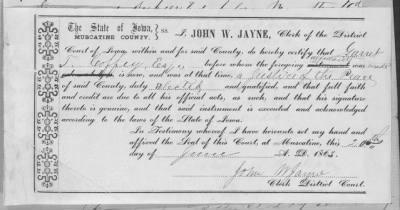 The State of Iowa,
MUSCATINE COUNTY.
SS. I, JOHN W. JAYNE, Clerk of the District
Court of Iowa within and for said County, do hereby certify that Garret
before whom the foregoing was made
is now, and was at that time, a Justice of the Peace
of said County, duly elected and qualified, and that full faith
and credit are due to all his official acts, as such, and that his signature
thereto is genuine, and that said instrument is executed and acknowledged
according to the laws of the State of Iowa.
In Testimony whereof I have hereunto set my hand and
affixed the Seal of this Court at Muscatine, this 20th
day of June A. D. 1865
John W Jayne
Clerk District Court.